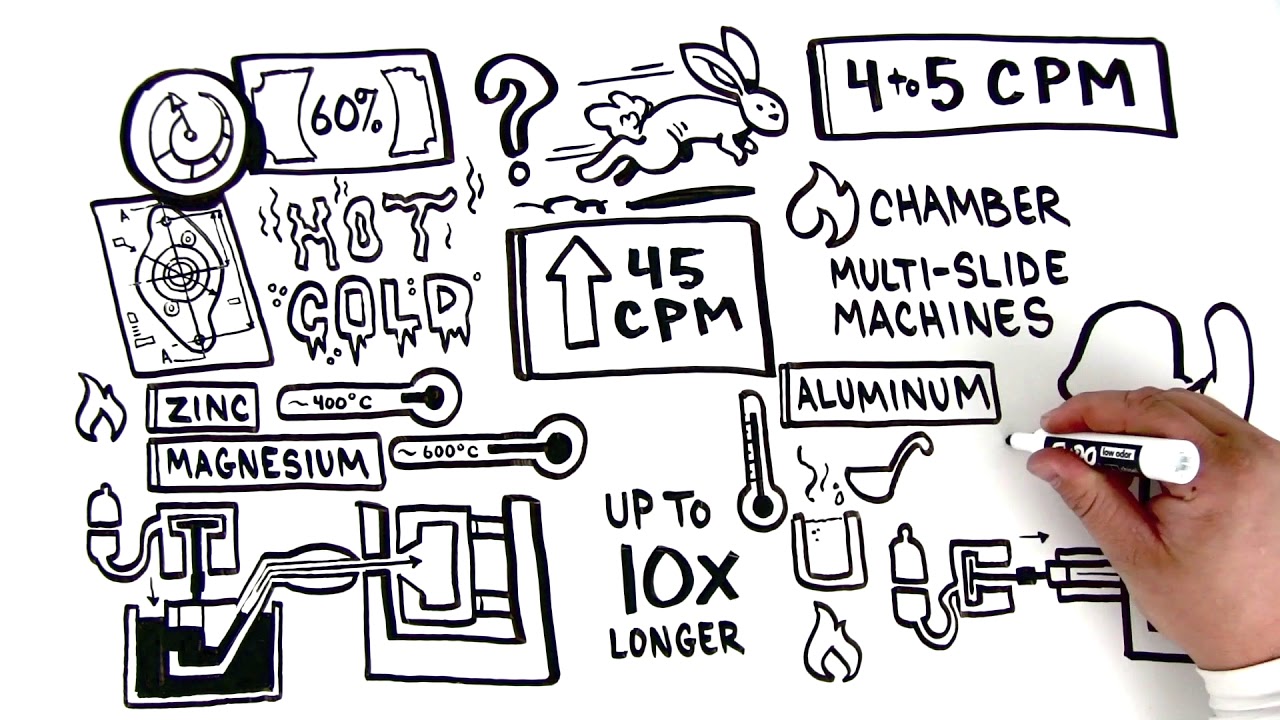 60%
?
4 to 5 CPM
HOT
COLD
45
CPM
CHAMBER
MULTI-SLIDE
MACHINES
A
A
ZINC
~400°C
MAGNESIUM
~600°C
ALUMINUM
UP TO
10X
LONGER
low odor